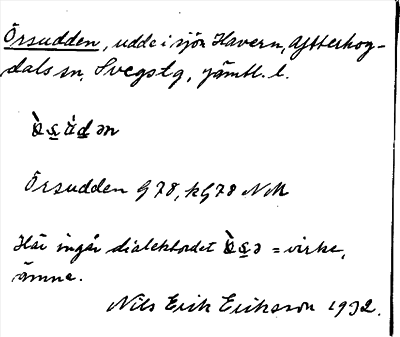 Örsudden, udde i sjön Havern, Ytterhog-
dals sn, Svegs tg, Jämtl. l.
Örsudden G78, kG78 NM
Här ingår dialektordet = virke,
ämne.
Nils Erik Eriksson 1932.